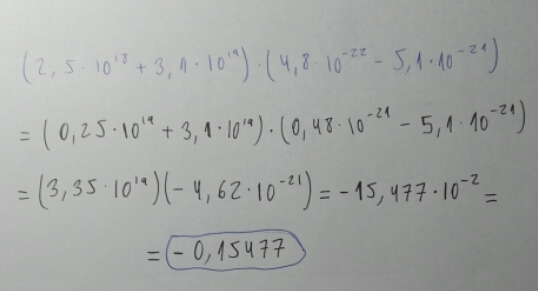 (2,5·10¹⁸ + 3,1·10¹⁹)·(4,8·10⁻²² − 5,1·10⁻²¹)
= (0,25·10¹⁹ + 3,1·10¹⁹)·(0,48·10⁻²¹ − 5,1·10⁻²¹)
= (3,35·10¹⁹)(−4,62·10⁻²¹) = −15,477·10⁻² =
= −0,15477